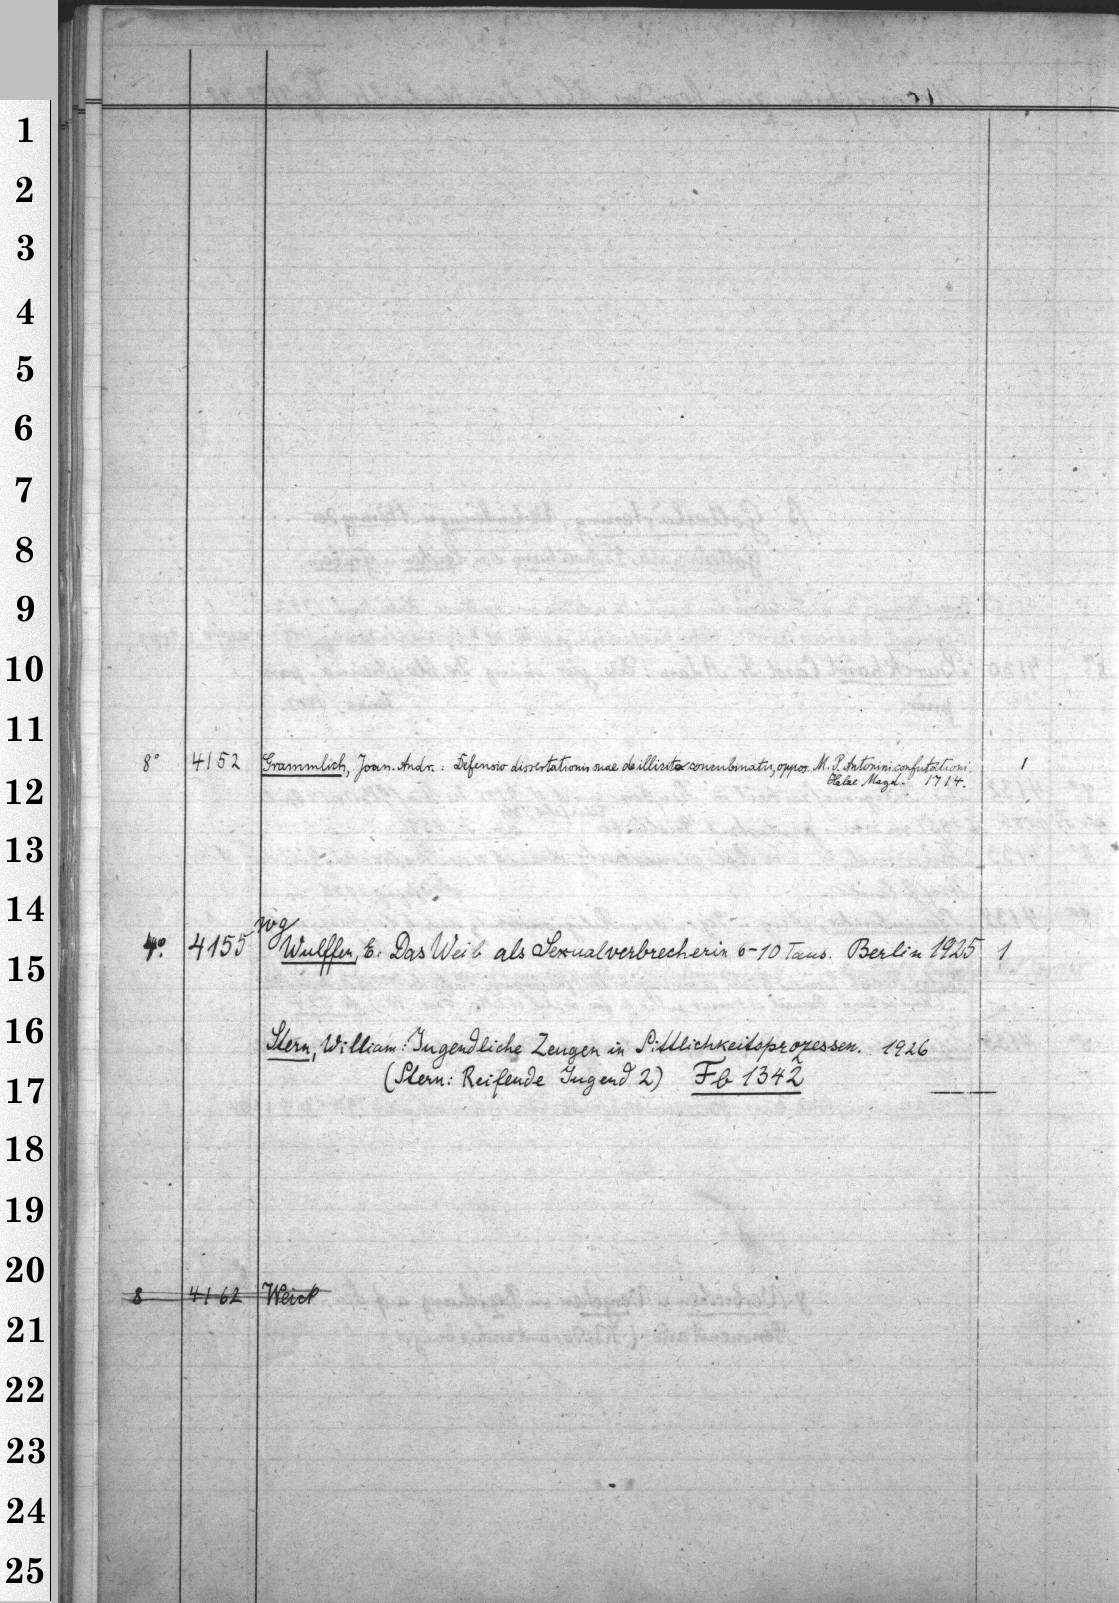 1
2
3
4
5
6
7
8
9
10
11
8° 4152 Grammlich, Joan. Andr.: Defensio dissertationis suae de illicito concubinatu, oppos. M. P. Antonini confutationi 1
Halae Magd. 1714.
12
13
14
4° 4155 Wulffen, E: Das Weib als Sexualverbrecherin 6-10 Taus. Berlin 1925 1
15
16
Stern, William: Jugendliche Zeugen in Sittlichkeitsprozessen. 1926
(Stern: Reifende Jugend 2) Fb 1342
17
18
19
20
8 4162 Weick
21
22
23
24
25